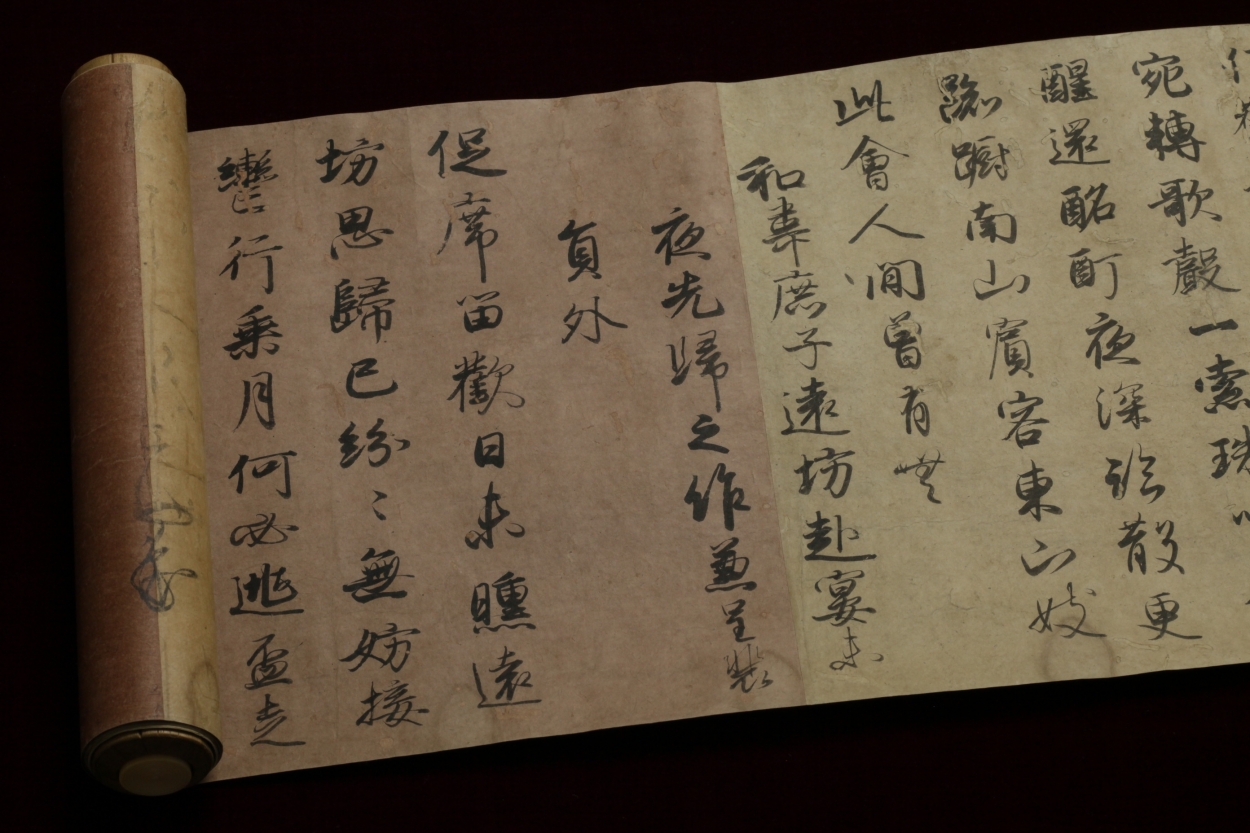 宛轉歌聲一索珠
醒還酩酊夜深臨散更
踟躕南山賓客東山妓
此會人間曾有無
和韋庶子遠坊赴宴未
夜先歸之作兼呈裴
員外
促席留歡日未曛遠
坊思歸已紛〻無妨接
轡行乗月何必逃盃走